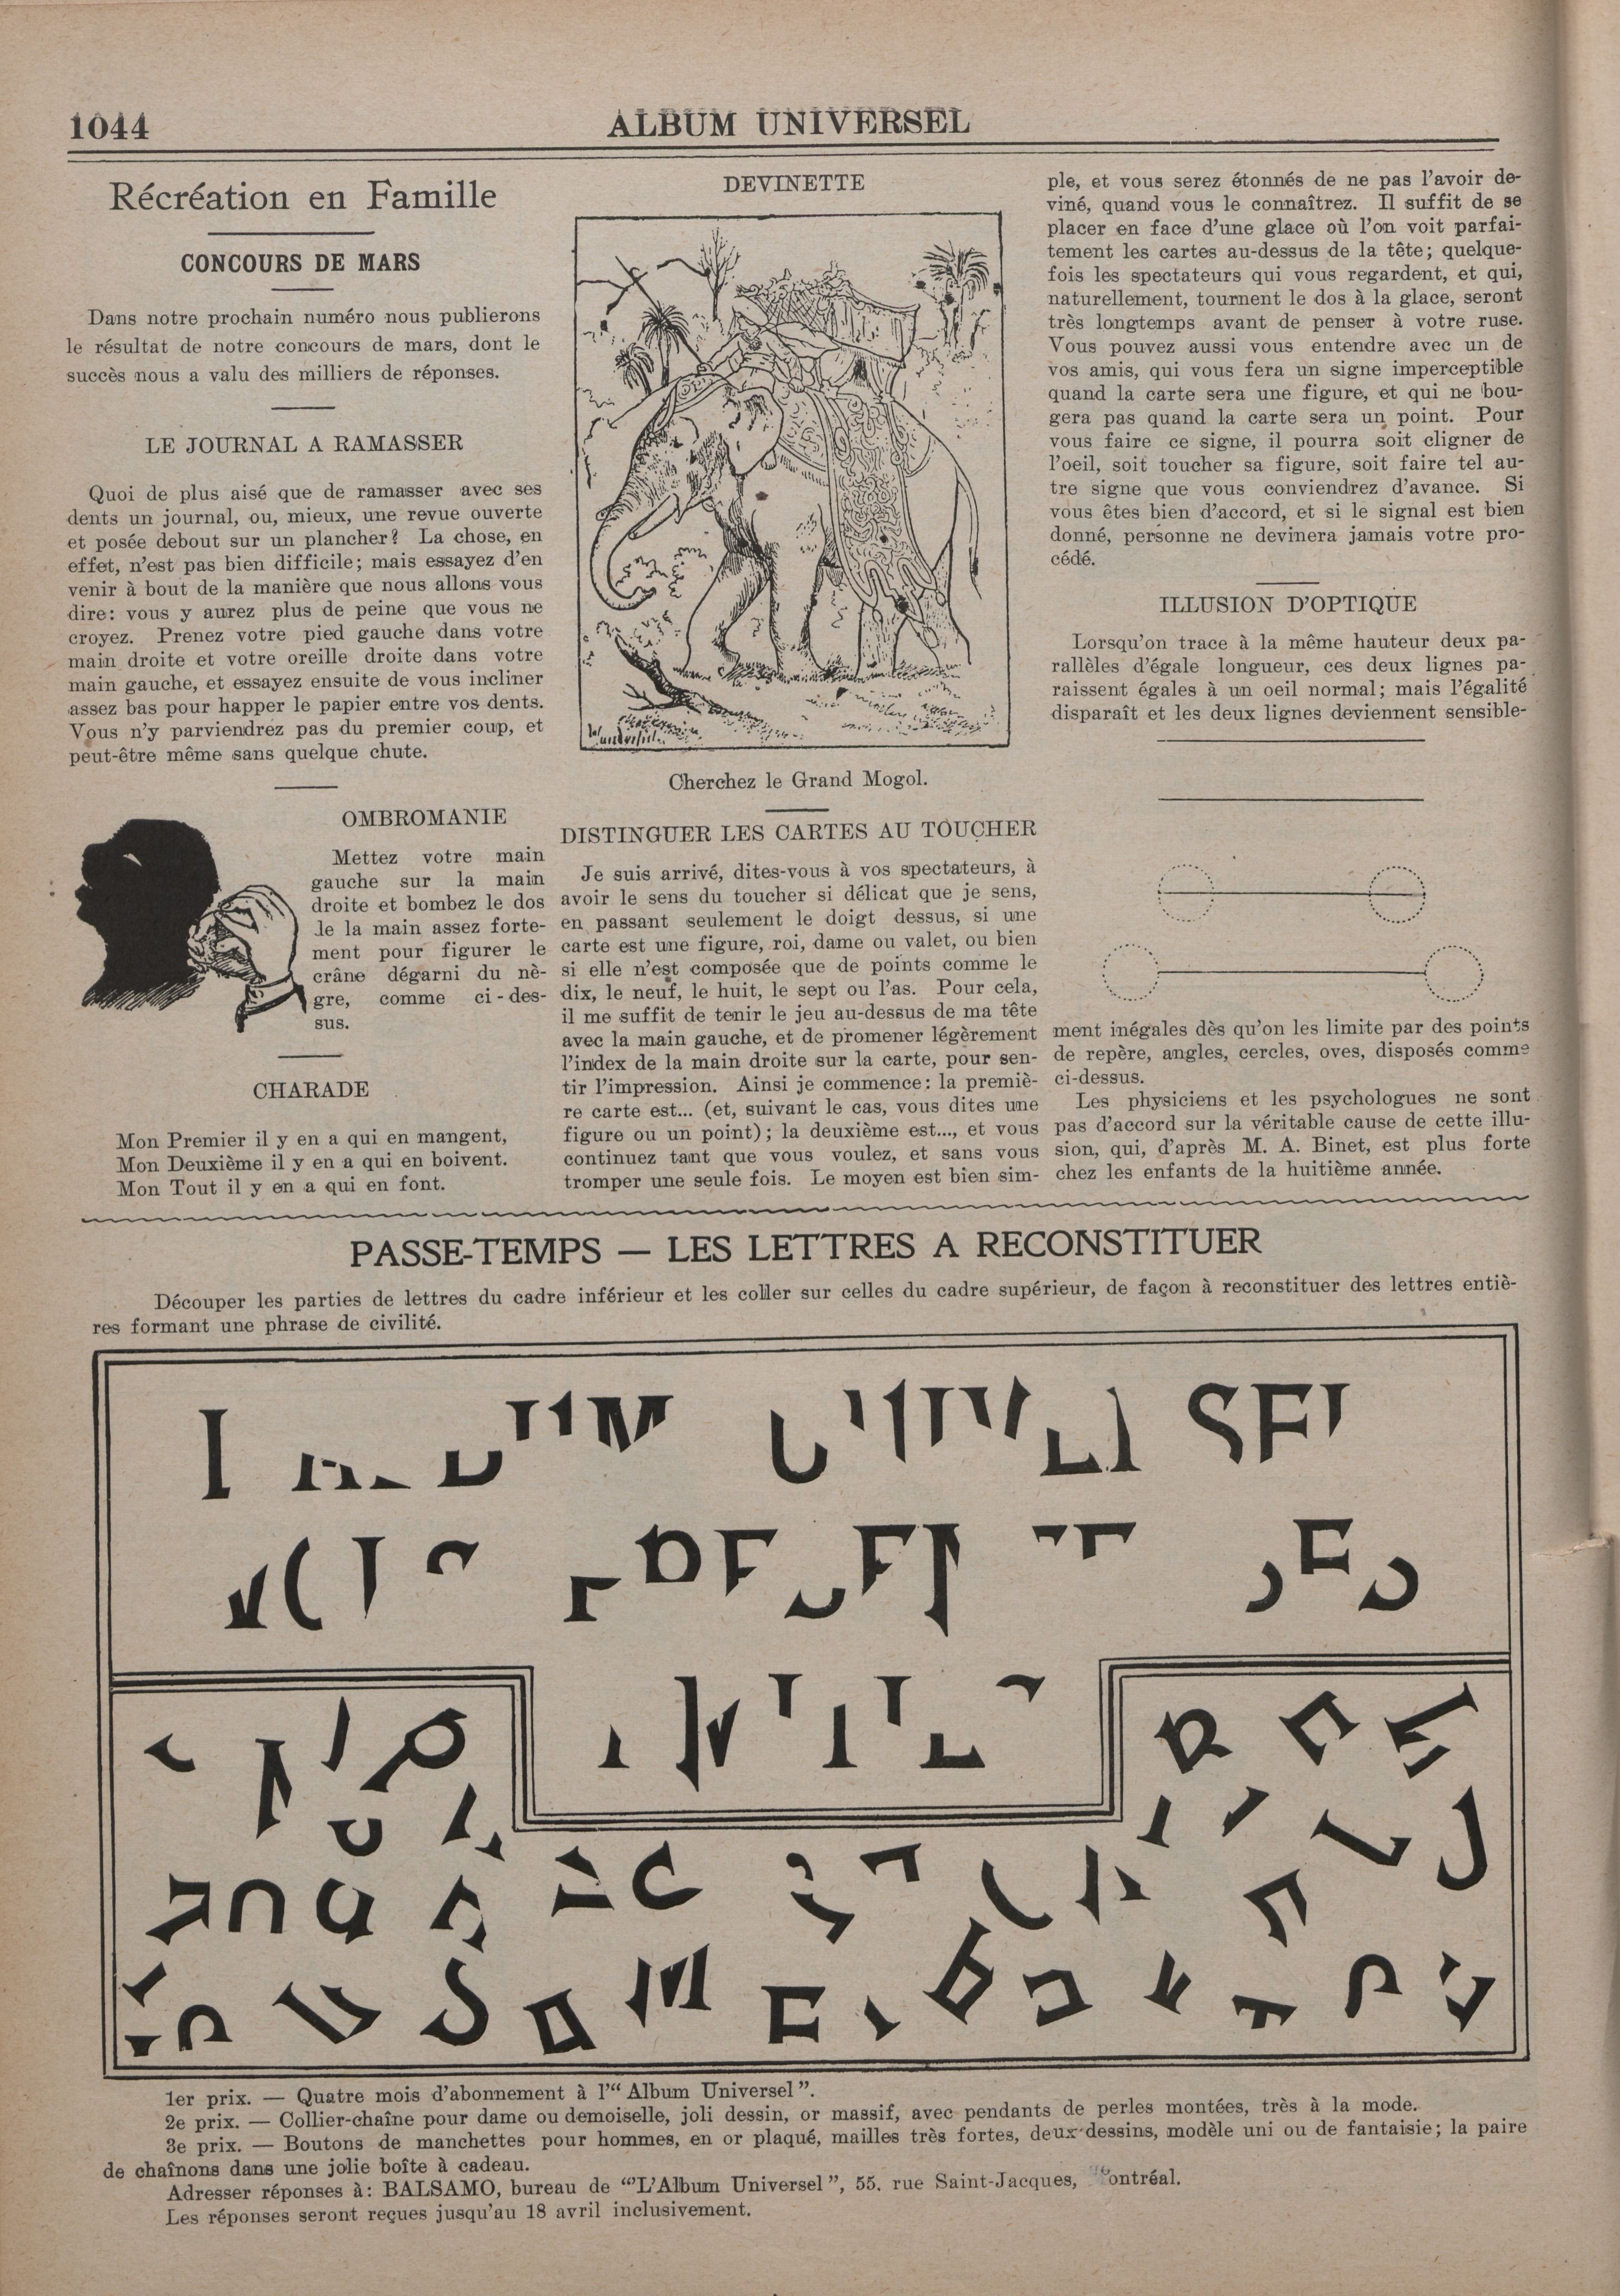 1044
ALBUM UNIVERSEL
Récréation en Famille
CONCOURS DE MARS
Dans notre prochain numéro nous publierons
le résultat de notre concours de mars, dont le
succès nous a valu des milliers de réponses.
LE JOURNAL A RAMASSER
Quoi de plus aisé que de ramasser avec ses
dents un journal, ou, mieux, une revue ouverte
et posée debout sur un plancher? La chose, en
effet, n'est pas bien difficile; mais essayez d'en
venir à bout de la manière que nous allons vous
dire: vous y aurez plus de peine que vous ne
croyez. Prenez votre pied gauche dans votre
main droite et votre oreille droite dans votre
main gauche, et essayez ensuite de vous incliner
assez bas pour happer le papier entre vos dents.
Vous n'y parviendrez pas du premier coup, et
peut-être même sans quelque chute.
OMBROMANIE
Mettez votre main
gauche sur la main
droite et bombez le dos
de la main assez forte-
ment pour figurer le
crâne dégarni du nè-
gre, comme ci-des-
sus.
CHARADE
Mon Premier il y en a qui en mangent,
Mon Deuxième il y en a qui en boivent.
Mon Tout il y en a qui en font.
DEVINETTE
Cherchez le Grand Mogol.
DISTINGUER LES CARTES AU TOUCHER
Je suis arrivé, dites-vous à vos spectateurs, à
avoir le sens du toucher si délicat que je sens,
en passant seulement le doigt dessus, si une
carte est une figure, roi, dame ou valet, ou bien
si elle n'est composée que de points comme le
dix, le neuf, le huit, le sept ou l'as. Pour cela,
il me suffit de tenir le jeu au-dessus de ma tête
avec la main gauche, et de promener légèrement
l'index de la main droite sur la carte, pour sen-
tir l'impression. Ainsi je commence: la premiè-
re carte est... (et, suivant le cas, vous dites une
figure ou un point); la deuxième est..., et vous
continuez tant que vous voulez, et sans vous
tromper une seule fois. Le moyen est bien sim-
ple, et vous serez étonnés de ne pas l'avoir de-
viné, quand vous le connaîtrez. Il suffit de se
placer en face d'une glace où l'on voit parfai-
tement les cartes au-dessus de la tête; quelque-
fois les spectateurs qui vous regardent, et qui,
naturellement, tournent le dos à la glace, seront
très longtemps avant de penser à votre ruse.
Vous pouvez aussi vous entendre avec un de
vos amis, qui vous fera un signe imperceptible
quand la carte sera une figure, et qui ne bou-
gera pas quand la carte sera un point. Pour
vous faire ce signe, il pourra soit cligner de
l'oeil, soit toucher sa figure, soit faire tel au-
tre signe que vous conviendrez d'avance. Si
vous êtes bien d'accord, et si le signal est bien
donné, personne ne devinera jamais votre pro-
cédé.
ILLUSION D'OPTIQUE
Lorsqu'on trace à la même hauteur deux pa-
rallèles d'égale longueur, ces deux lignes pa-
raissent égales à un oeil normal; mais l'égalité
disparaît et les deux lignes deviennent sensible-
ment inégales dès qu'on les limite par des points
de repère, angles, cercles, oves, disposés comme
ci-dessus.
Les physiciens et les psychologues ne sont
pas d'accord sur la véritable cause de cette illu-
sion, qui, d'après M. A. Binet, est plus forte
chez les enfants de la huitième année.
PASSE-TEMPS — LES LETTRES A RECONSTITUER
Découper les parties de lettres du cadre inférieur et les coller sur celles du cadre supérieur, de façon à reconstituer des lettres entiè-
res formant une phrase de civilité.
1er prix. — Quatre mois d'abonnement à l'"Album Universel".
2e prix. — Collier-chaîne pour dame ou demoiselle, joli dessin, or massif, avec pendants de perles montées, très à la mode.
3e prix. — Boutons de manchettes pour hommes, en or plaqué, mailles très fortes, deux dessins, modèle uni ou de fantaisie; la paire
de chaînons dans une jolie boîte à cadeau.
Adresser réponses à: BALSAMO, bureau de "L'Album Universel", 55, rue Saint-Jacques, Montréal.
Les réponses seront reçues jusqu'au 18 avril inclusivement.